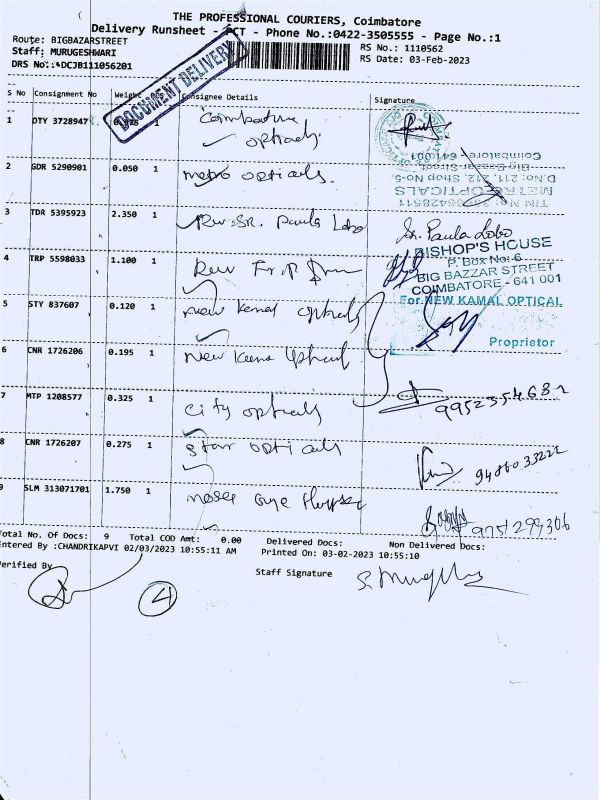 THE PROFESSIONAL COURIERS, Coimbatore
Delivery Runsheet - PCT - Phone No.:0422-3505555 - Page No.:1
Route: BIGBAZARSTREET
RS No.: 1110562
Staff: MURUGESHWARI
RS Date: 03-Feb-2023
DRS No.:*DCJB111056201
DOCUMENT DELIVERY
S No Consignment No Weight Pcs Consignee Details Signature
1 DTY 3728947 1 Coimbatore
opticals
2 GDR 5290901 0.050 1 metro opticals.
TIN No: 
METRO OPTICALS
D.No: 211, 212, Shop No-5,
Coimbatore - 641 001
3 TDR 5395923 2.350 1 Rev. SR. Paula Lobo
Sr. Paula Lobo
BISHOP'S HOUSE
P. Box No: 6
BIG BAZZAR STREET
COIMBATORE - 641 001
4 TRP 5598033 1.100 1 Rev Fr.
5 STY 837607 0.120 1 new Kamal opticals
For NEW KAMAL OPTICAL
Proprietor
6 CNR 1726206 0.195 1 New
7 MTP 1208577 0.325 1 City opticals
8 CNR 1726207 0.275 1 Star opticals
9 SLM 313071701 1.750 1 eye
Total No. Of Docs: 9 Total COD Amt: 0.00 Delivered Docs: Non Delivered Docs:
Entered By :CHANDRIKAPVI 02/03/2023 10:55:11 AM Printed On: 03-02-2023 10:55:10
Verified By
Staff Signature
4